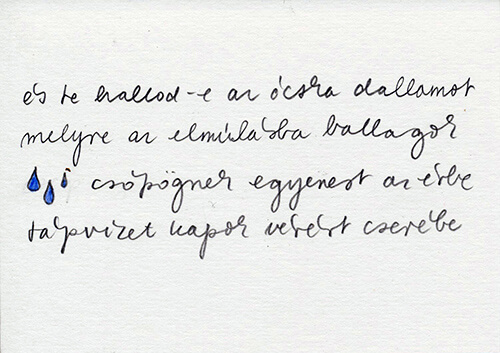 és te hallod-e az ócska dallamot
melyre az elmúlásba ballagok
csöpögnek egyenest az érbe
tápvizet kapok vérért cserébe